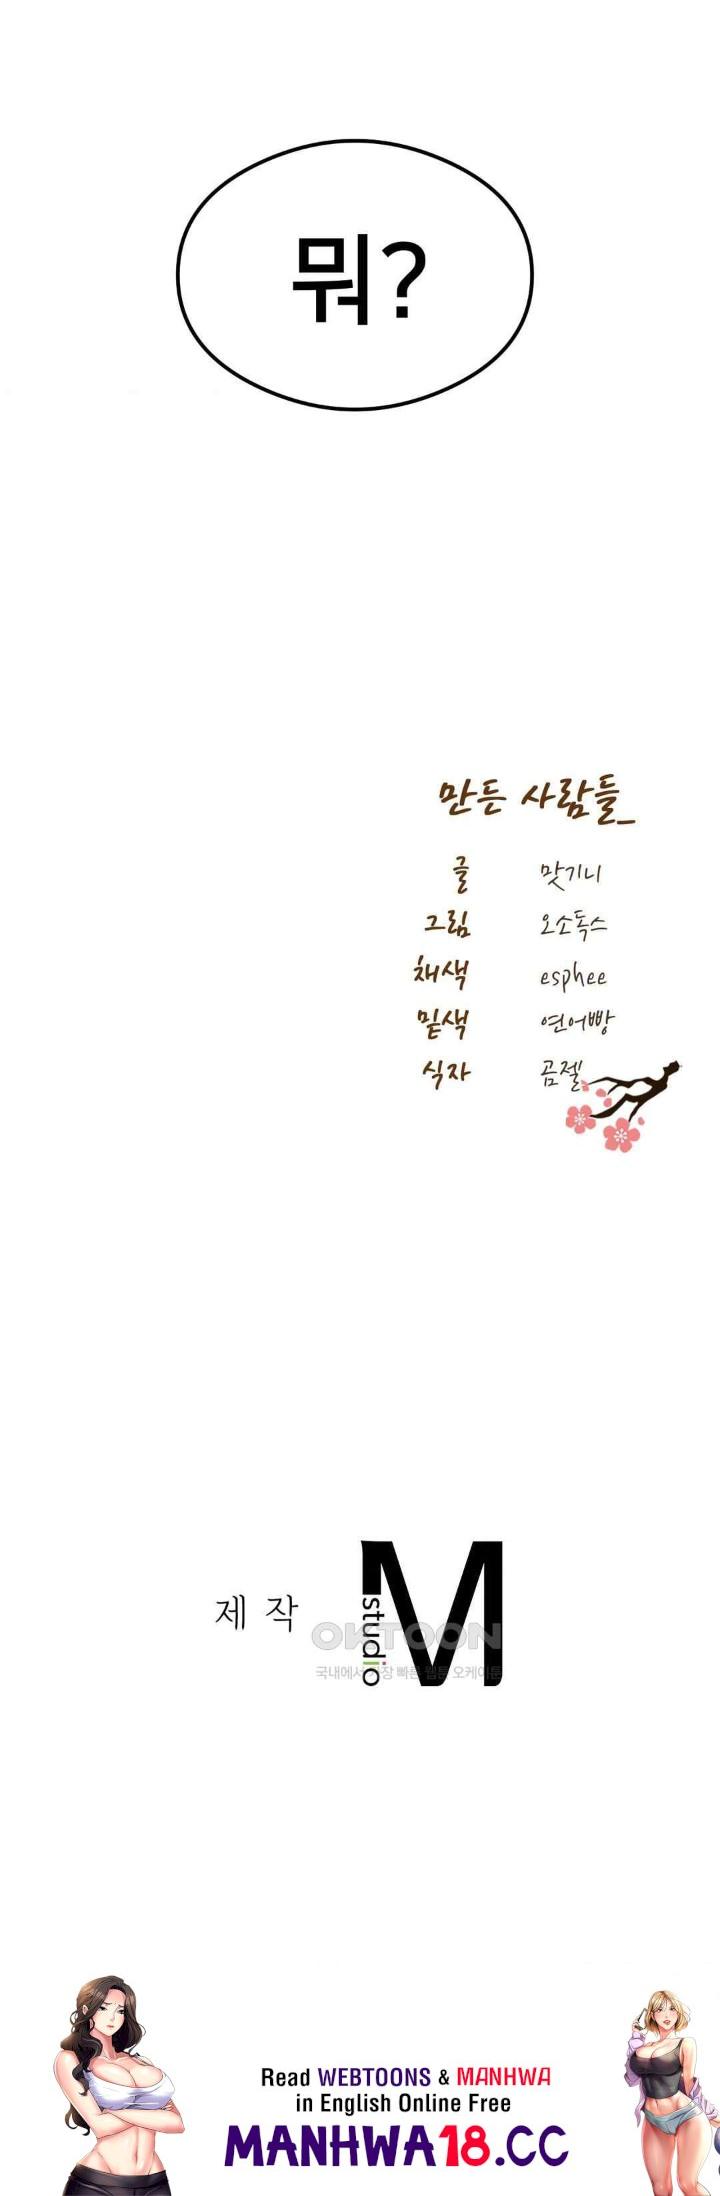 뭐?
만든 사람들_
글 맛기니
그림 오소독스
채색 esphee
밑색 연어빵
식자 곰젤
제작
M
studio
OKTOON
국내에서 가장 빠른 웹툰 오케이툰
Read WEBTOONS & MANHWA
in English Online Free
MANHWA18.CC